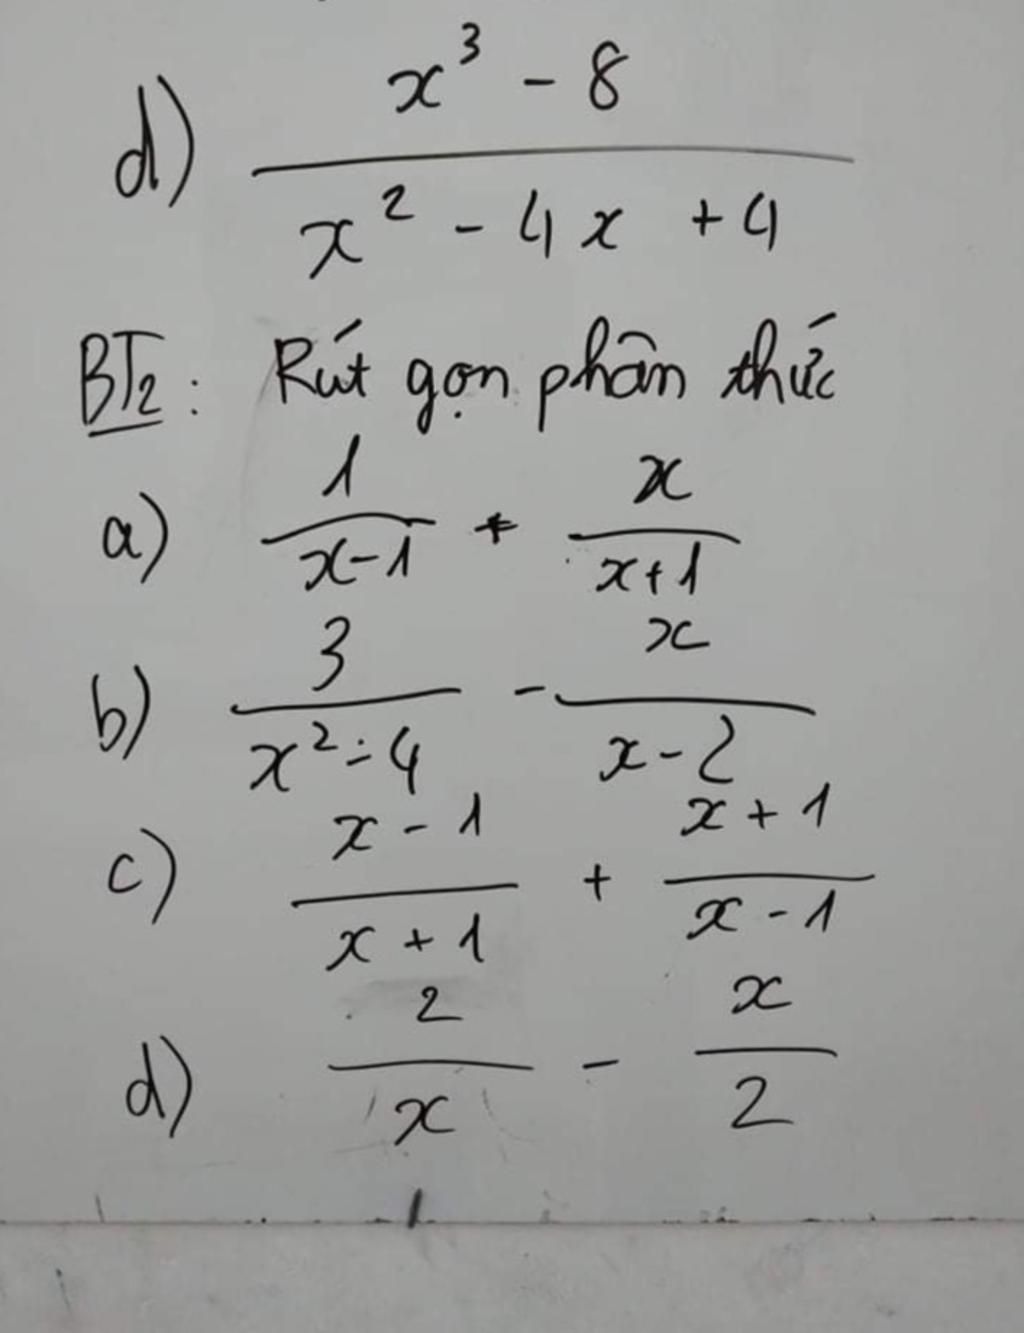 d) (x³ - 8)/(x² - 4x + 4)
BT2: Rút gọn phân thức
a) 1/(x-1) + x/(x+1)
b) 3/(x² - 4) - x/(x-2)
c) (x - 1)/(x + 1) + (x + 1)/(x - 1)
d) 2/x - x/2